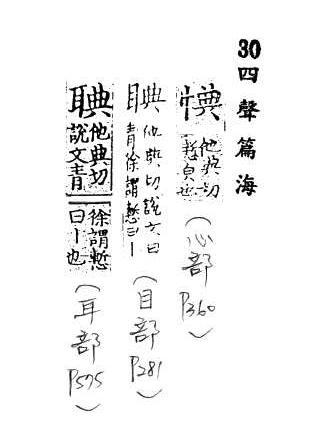 30 四聲篇海
㥏 他典切
慙皃也
(心部
P360)
睓 他典切說文曰
青徐謂慙曰丨
(目部
P281)
䩄他典切 徐謂慙
說文青 曰丨也
(耳部
P575)